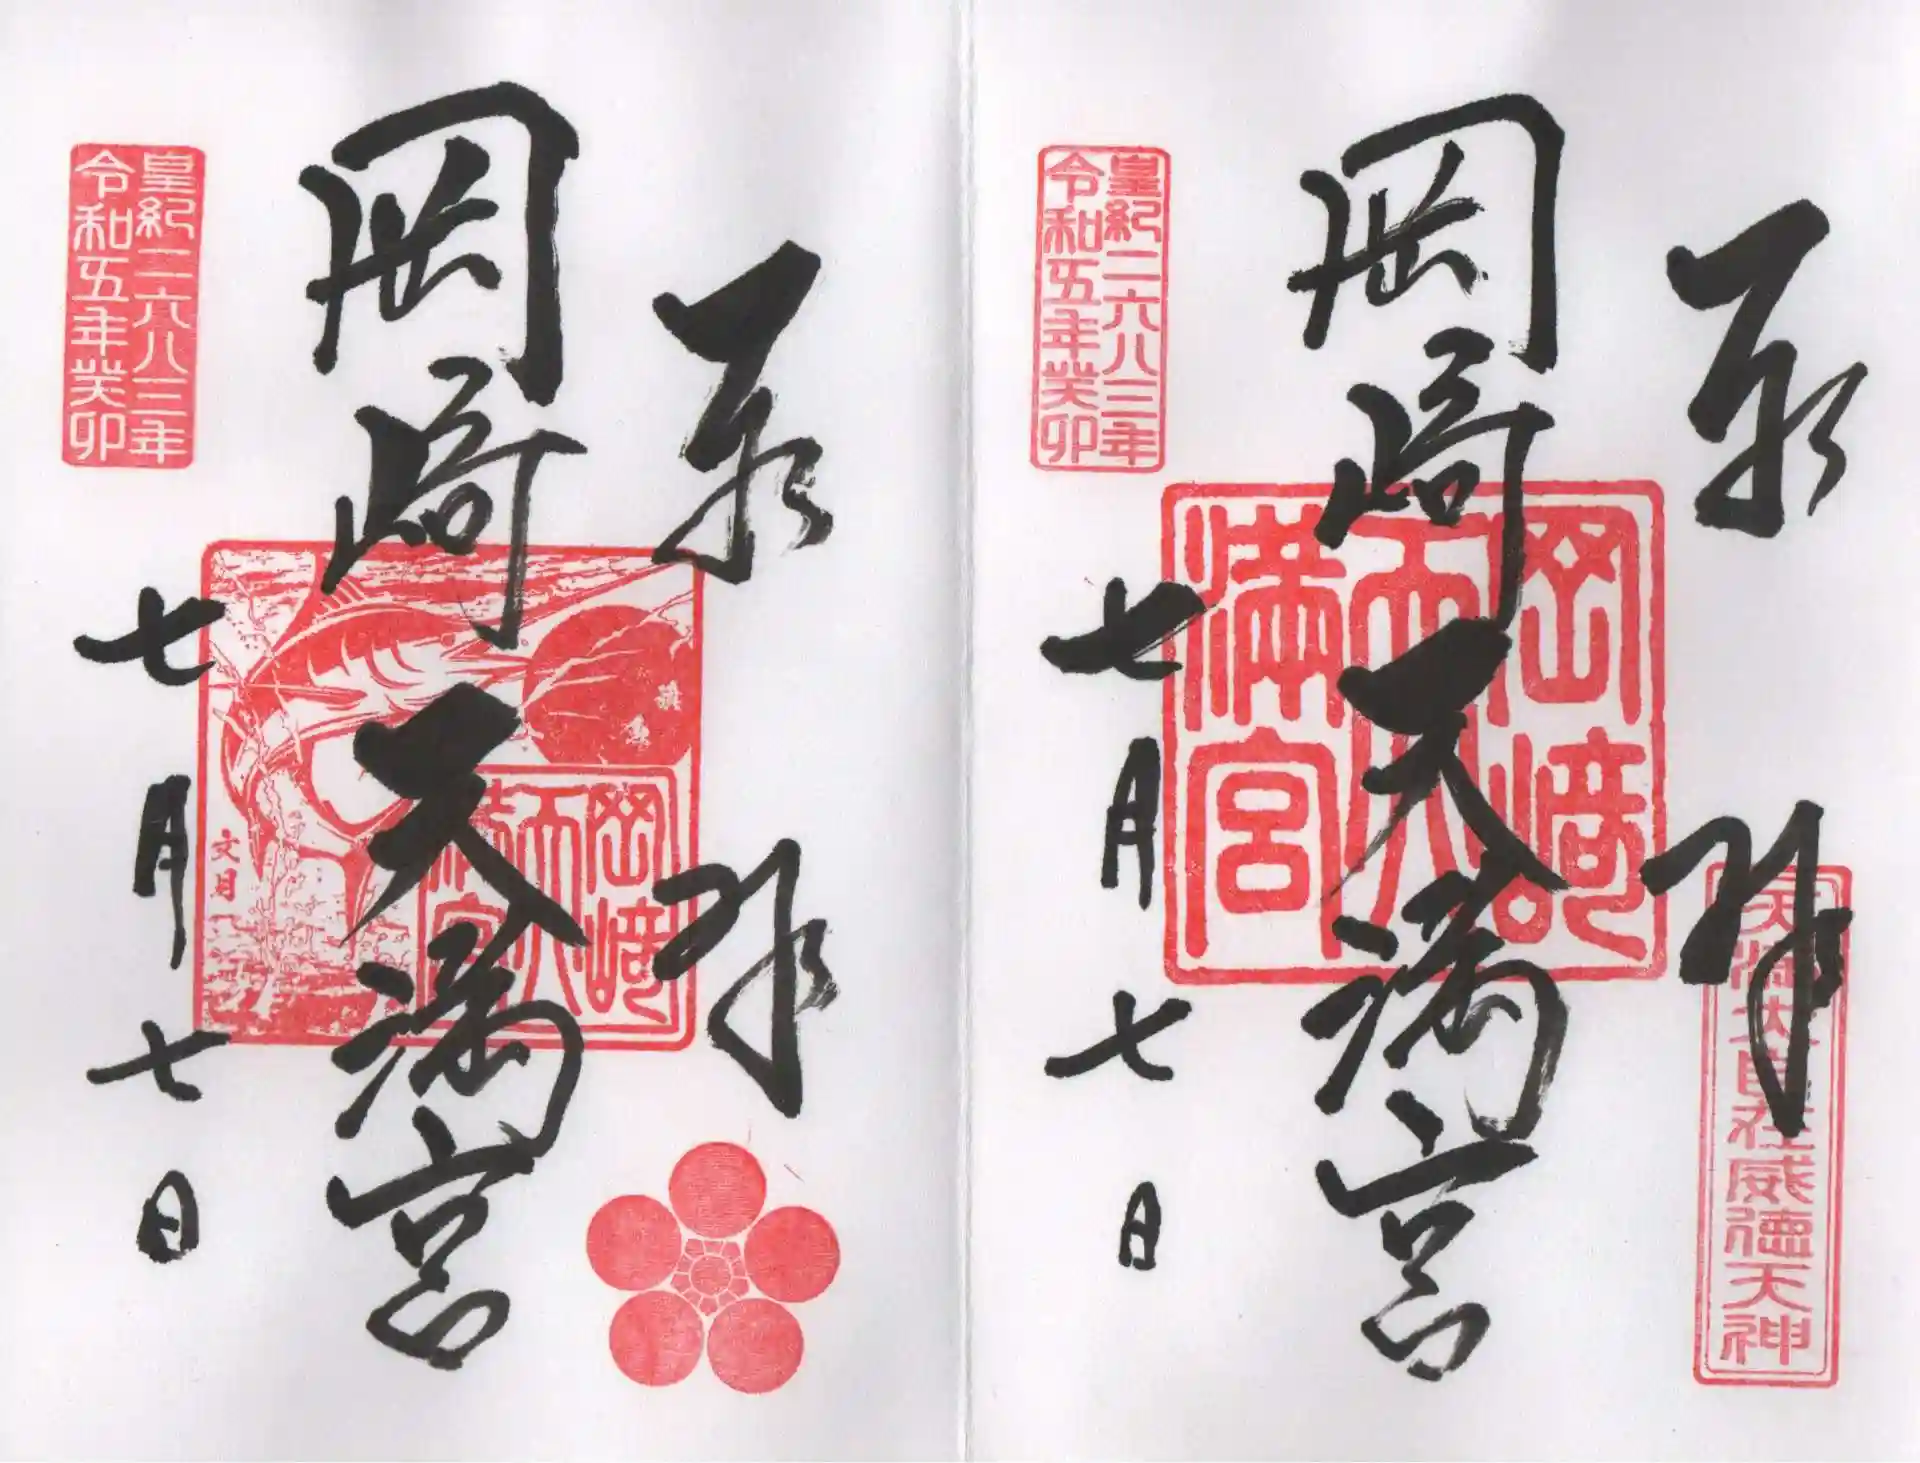 奉拝
天満大自在威徳天神
岡崎天満宮
岡崎
天
満宮
七月七日
皇紀二六八三年
令和五年癸卯
奉拝
岡崎天満宮
旗魚
岡崎
天
満宮
文月
七月七日
皇紀二六八三年
令和五年癸卯